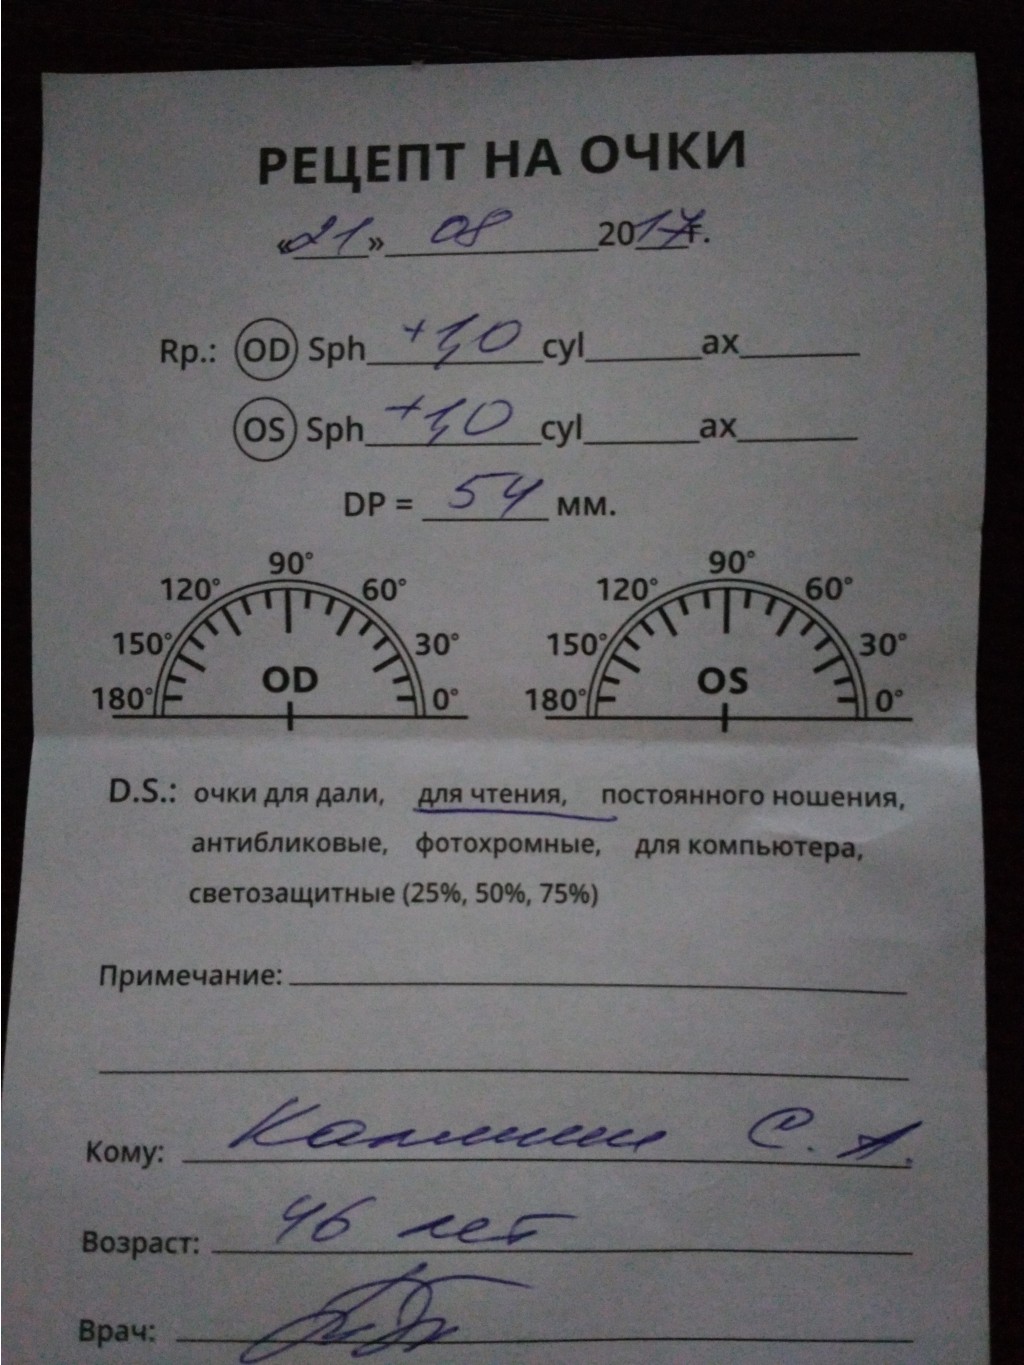 РЕЦЕПТ НА ОЧКИ
«21» 08 2017г.
Rp.: OD Sph +1,0 cyl ax
OS Sph +1,0 cyl ax
DP = 54 мм.
90° 90°
120° 60° 120° 60°
150° 30° 150° 30°
180° OD 0° 180° OS 0°
D.S.: очки для дали, для чтения, постоянного ношения,
антибликовые, фотохромные, для компьютера,
светозащитные (25%, 50%, 75%)
Примечание:
Кому: С. А.
Возраст: 46 лет
Врач: